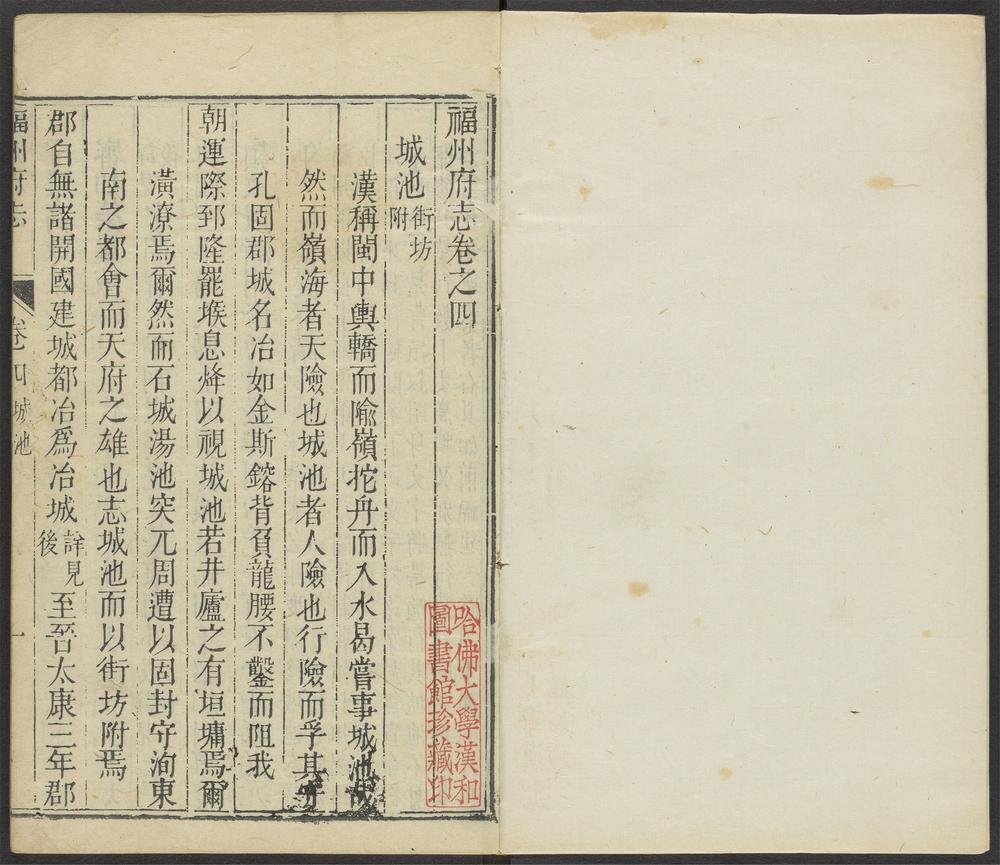 福州府志卷之四
城池街坊附
漢稱閩中輿轎而隃嶺拕舟而入水曷嘗事城池哉
然而嶺海者天險也城池者人險也行險而孚其
孔固郡城名冶如金斯鎔背負龍腰不鑿而阻我
朝運際郅隆罷堠息烽以視城池若井廬之有垣墉焉爾
潢潦焉爾然而石城湯池突兀周遭以固封守洵東
南之都會而天府之雄也志城池而以街坊附焉
郡自無諸開國建城都冶爲冶城詳見後至晉太康三年郡
福州府志 卷四城池 一
哈佛大學漢和
圖書館珍藏印